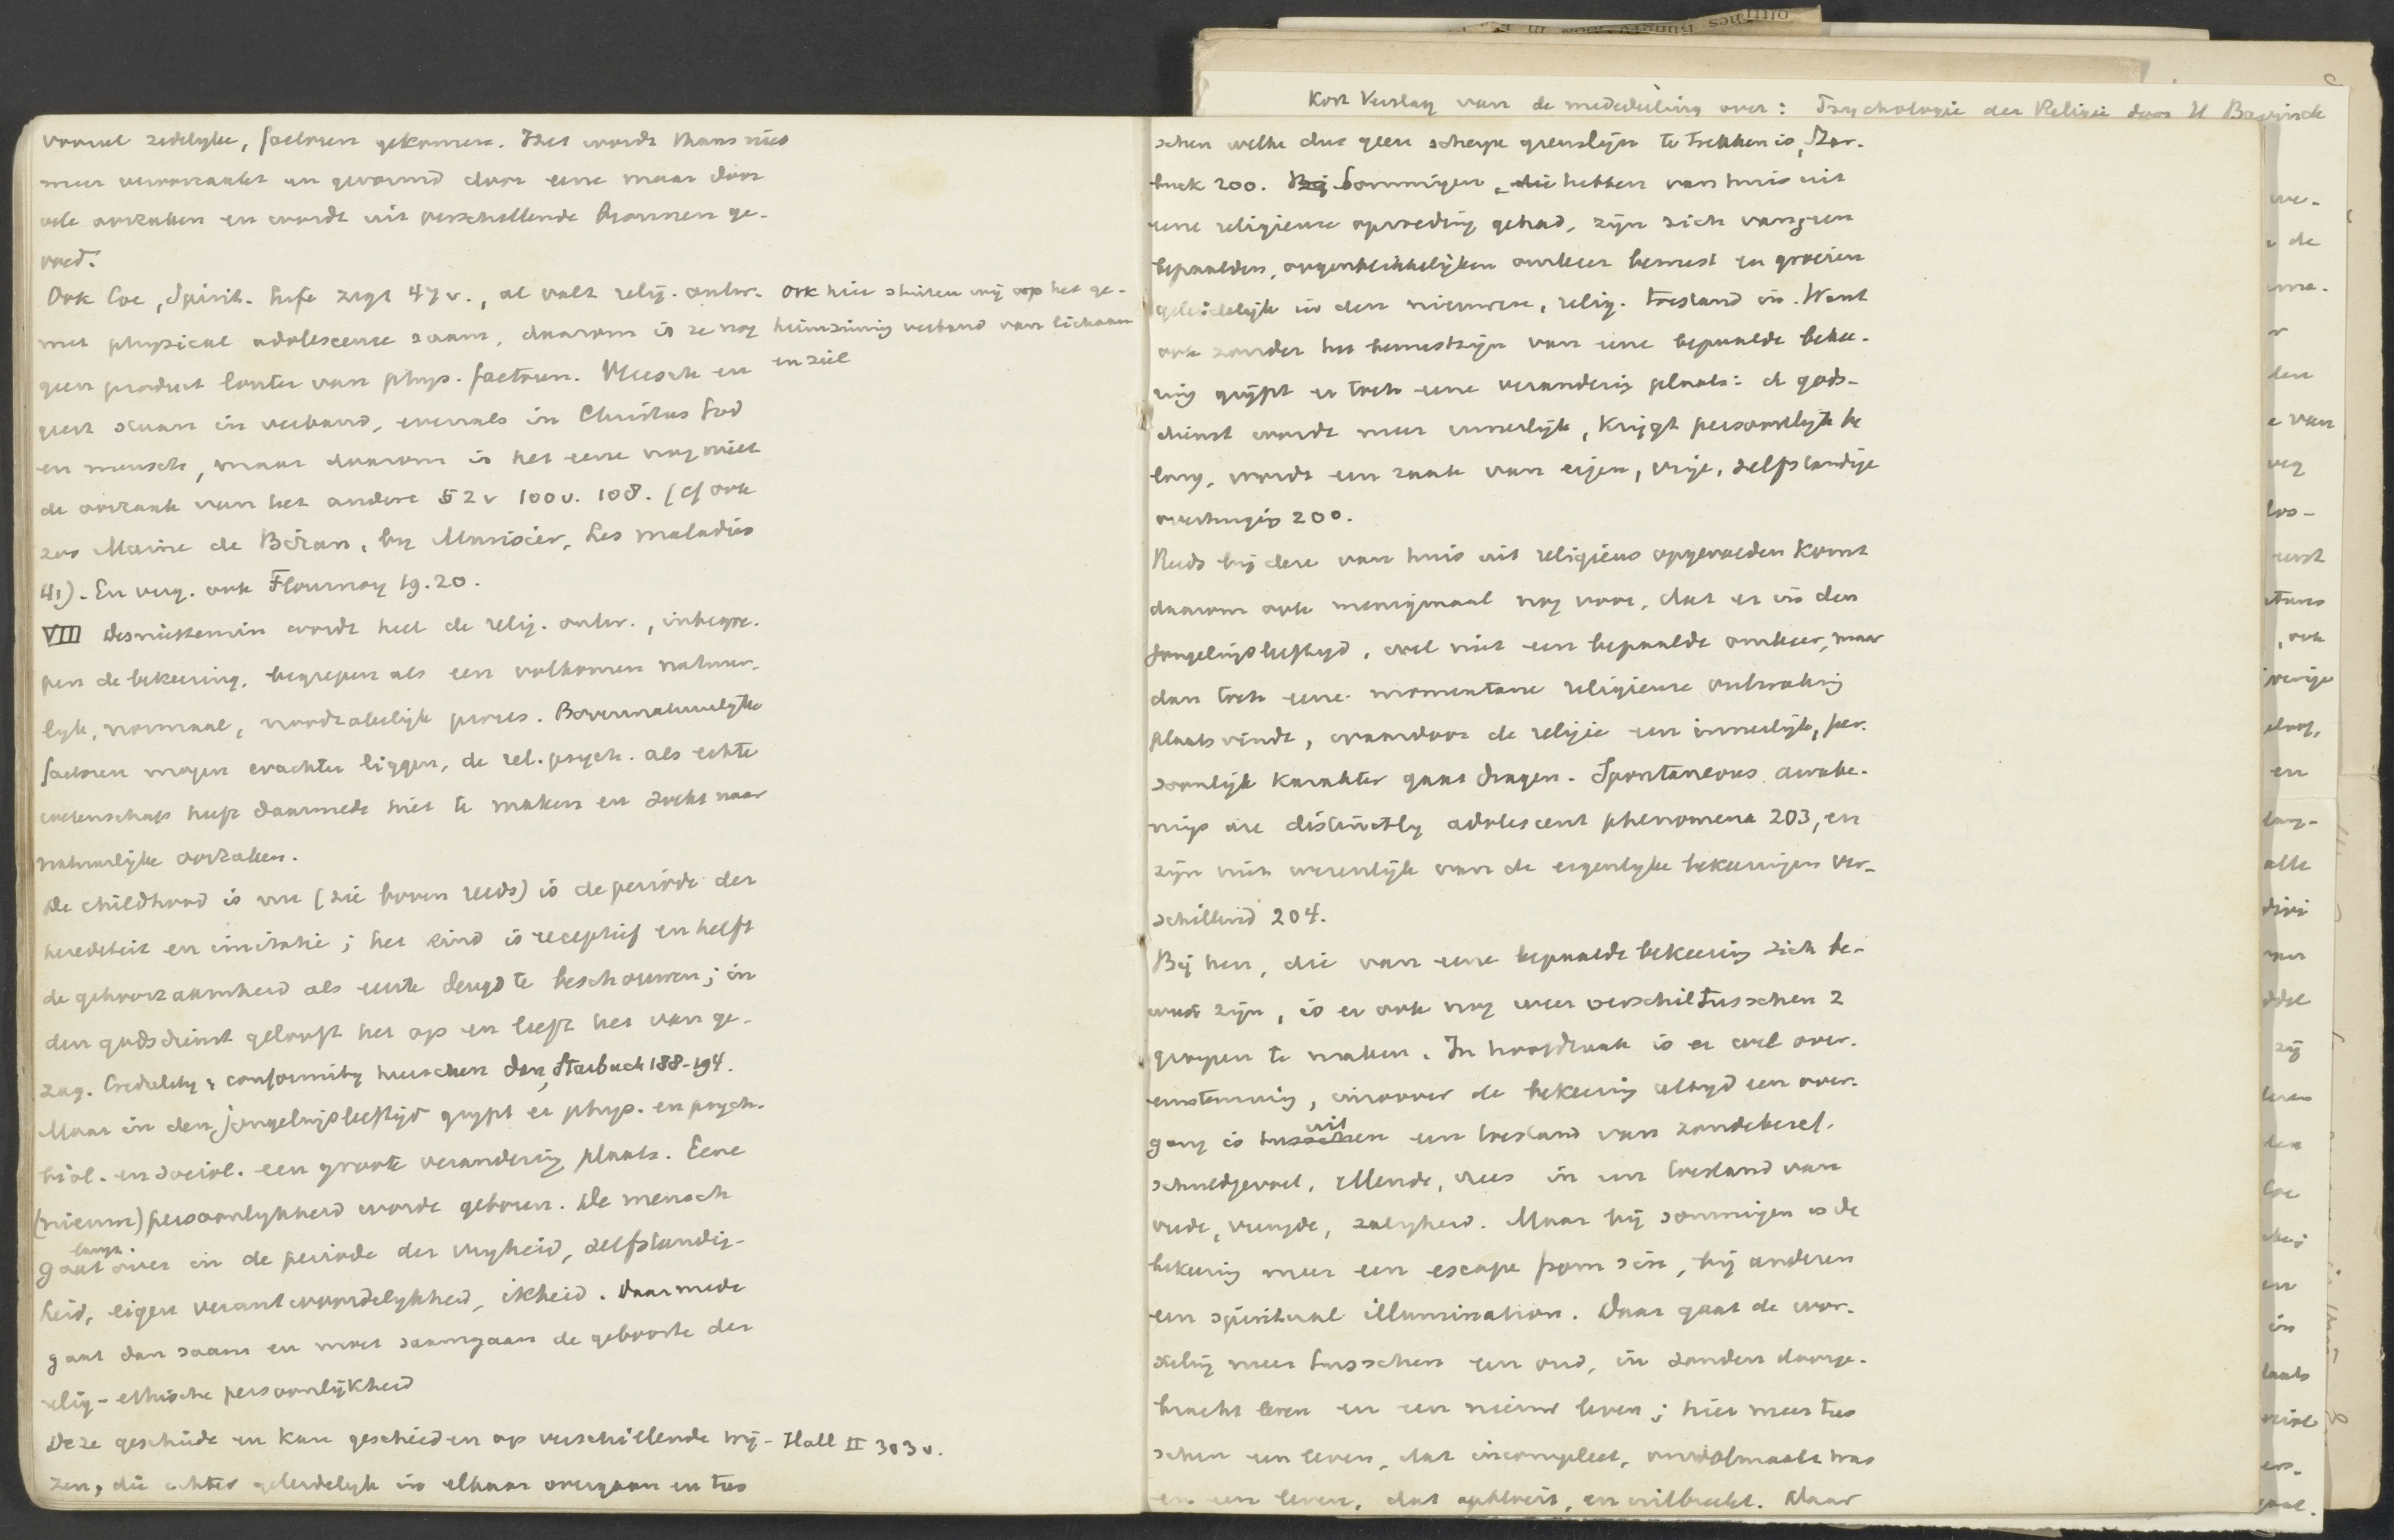 vooral zedelyke, factoren gekomen. Het wordt thans niet
meer veroorzaakt en gevormd door eene maar door
vele oorzaken en wordt uit verschillende bronnen ge-
voed.
Ook Coe, Spirit. Life zegt 47v., al valt relig. ontw.
met physical adolescence saam, daarom is ze nog
geen product louter van phys. factoren. Vleesch en
geest staan in verband, evenals in Christus God
en mensch, maar daarom is het eene nog niet
de oorzaak van het andere 52v 100v. 108. (cf ook
zoo Maine de Biran, by Murisier, Les maladies
41). En verg. ook Flournoy 19.20.
Ook hier stuiten wij op het ge-
heimzinnig verband van lichaam
en ziel
VIII Desniettemin wordt heel de relig. ontw., inbegre-
pen de bekeering, begrepen als een volkomen natuur-
lyk, normaal, noodzakelijk proces. Bovennatuurlyke
factoren mogen erachter liggen, de rel. psych. als echte
wetenschap heeft daarmede niet te maken en zoekt naar
natuurlijke oorzaken.
De childhood is nu (zie boven reeds) is de periode der
herediteit en imitatie; het kind is receptief en heeft
de gehoorzaamheid als eerste deugd te beschouwen; in
den godsdienst gelooft het op en leeft het van ge-
zag. Credulity & conformity heerschen dan, Starbuck 188-194.
Maar in den jongelingsleeftijd grypt er phys. en psych.
biol. en sociol. een groote verandering plaats. Eene
(nieuwe) persoonlykheid wordt geboren. De mensch
gaat langz. over in de periode der vryheid, zelfstandig-
heid, eigen verantwoordelykheid, ikheid. Daarmede
gaat dan saam en moet saamgaan de geboorte der
relig-ethische persoonlijkheid
Deze geschiedt en kan geschieden op verschillende wij-
Hall II 303v.
zen, die echter geleidelyk in elkaar overgaan en tus
Kort Verslag van de mededeeling over: Psychologie der Religie door H Bavinck
schen welke dus geen scherpe grenslijn te trekken is, Star-
buck 200. Bij Sommigen, die hebben van huis uit
eene religieuse opvoeding gehad, zijn zich van geen
bepaalden, oogenblikkelijken omkeer bewust en groeien
geleidelijk in den nieuwen, relig. toestand in. Want
ook zonder het bewustzijn van eene bepaalde bekee-
ring grijpt er toch eene verandering plaats: de gods-
dienst wordt meer innerlijk, krijgt persoonlijk be
lang, wordt een zaak van eigen, vrije, zelfstandige
overtuiging 200.
Reeds bij deze van huis uit religieus opgevoeden komt
daarom ook menigmaal nog voor, dat er in den
jongelingsleeftyd, wel niet een bepaalde omkeer, maar
dan toch eene momentane religieuse ontwaking
plaats vindt, waardoor de religie een innerlijk, per-
soonlijk karakter gaat dragen. Spontaneous awake-
nings are distinctly adolescent phenomena 203, en
zijn niet wezenlijk van de eigenlyke bekeeringen ver-
schillend 204.
Bij hen, die van eene bepaalde bekeering zich be-
wust zijn, is er ook nog weer verschil tusschen 2
groepen te maken. In hoofdzaak is er wel over-
eenstemming, inzoover de bekeering altyd een over-
gang is tusschen uit een toestand van zondebesef,
schuldgevoel, ellende, vrees in een toestand van
vrede, vreugde, zaligheid. Maar bij sommigen is de
bekeering meer een escape from sin, bij anderen
een spiritual illumination. Daar gaat de wor-
steling meer tusschen een oud, in zonden doorge-
bracht leven en een nieuw leven; hier meer tus
schen een leven, dat incompleet, onvolmaakt was
en een leven, dat opbloeit, en uitbreekt. Daar